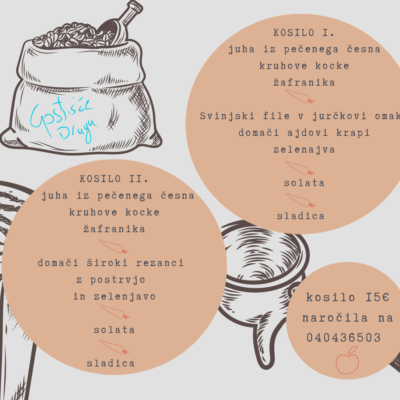 Gostišče
Dragu
KOSILO I.
juha iz pečenega česna
kruhove kocke
žafranika
Svinjski file v jurčkovi omak
domači ajdovi krapi
zelenajva
solata
sladica
KOSILO II.
juha iz pečenega česna
kruhove kocke
žafranika
domači široki rezanci
z postrvjo
in zelenjavo
solata
sladica
kosilo 15€
naročila na
040436503